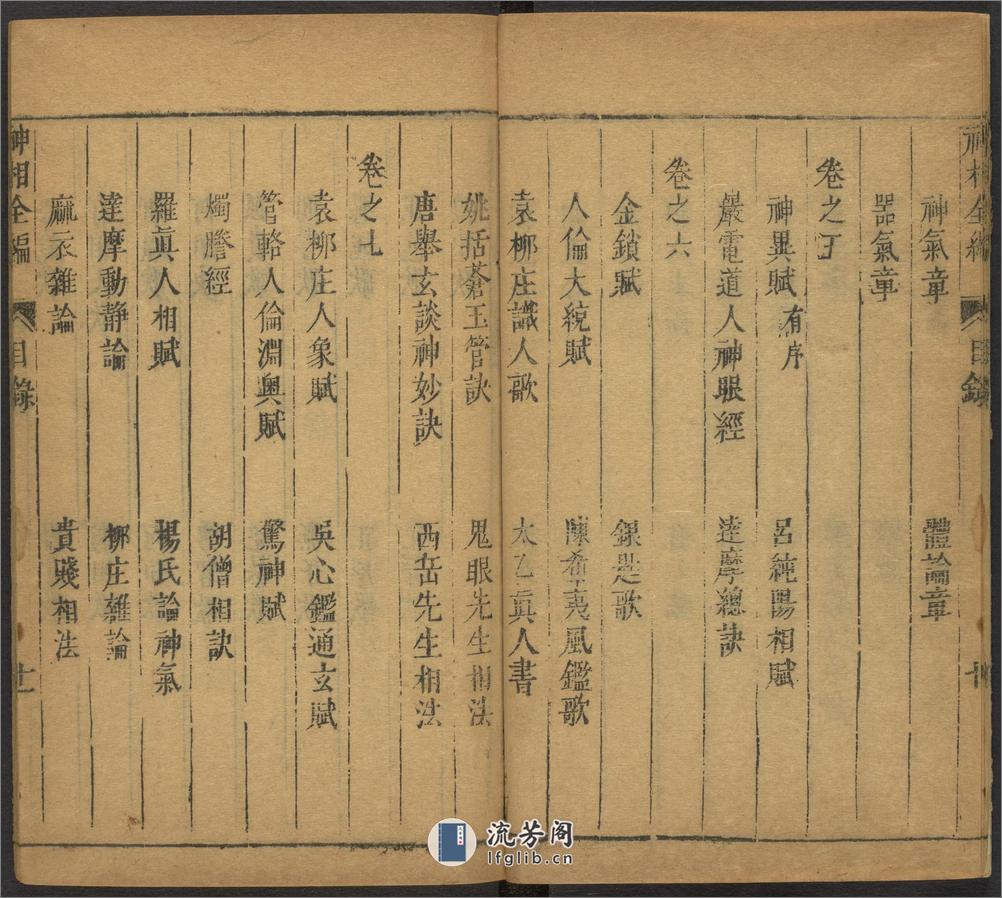 神相全編 目錄
神氣章 體論章
器氣章
卷之五
神異賦有序 呂純陽相賦
嚴電道人神眼經 達摩總訣
卷之六
金鎖賦 銀匙歌
人倫大綂賦 陳希夷風鑑歌
袁柳庄識人歌 太乙眞人書
姚括蒼玉管訣 鬼眼先生相法
唐舉玄談神妙訣 西岳先生相法
卷之七
袁柳庄人象賦 吳心鑑通玄賦
管輅人倫淵奧賦 驚神賦
燭膽經 胡僧相訣
羅眞人相賦 楊氏論神氣
達摩動靜論 柳庄雜論
麻衣雜論 貴賤相法
神相全編 目錄
流芳阁
lfglib.cn